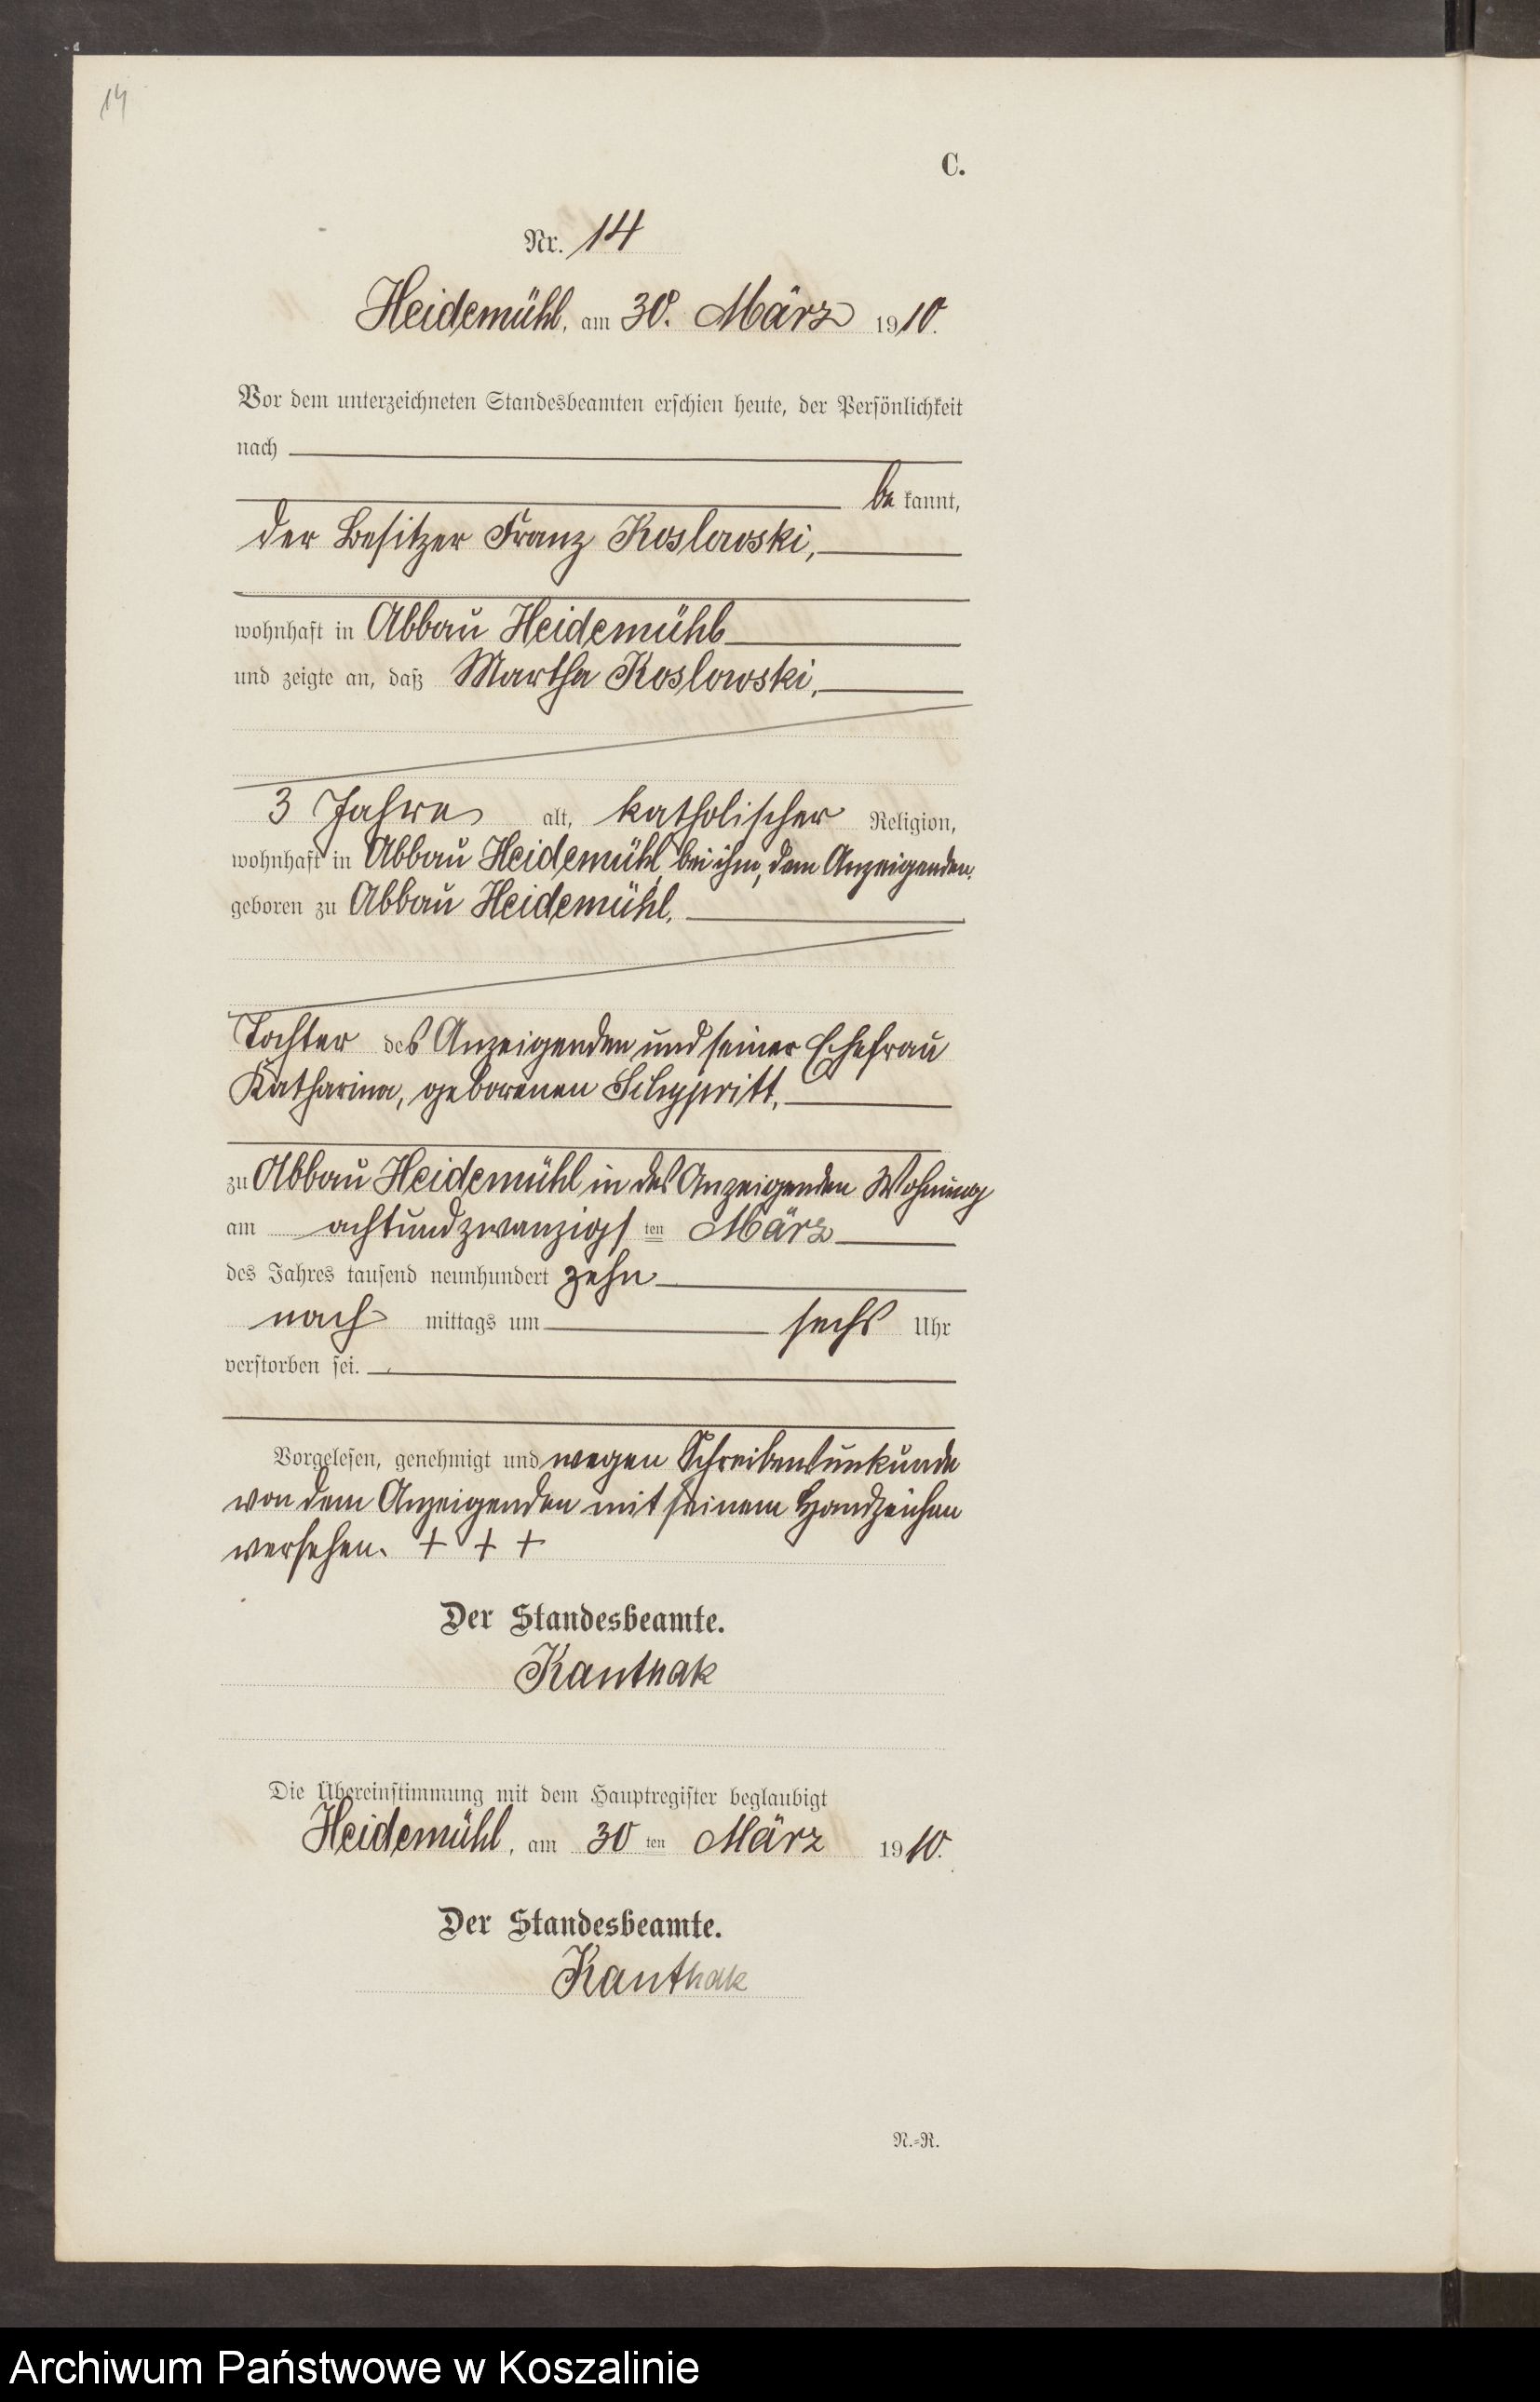 14
C.
Nr. 14
Heidemühl, am 30. März 1910.
Vor dem unterzeichneten Standesbeamten erschien heute, der Persönlichkeit
nach
be kannt,
der Besitzer Franz Koslowski,
wohnhaft in Abbau Heidemühl
und zeigte an, daß Martha Koslowski,
3 Jahre alt, katholischer Religion,
wohnhaft in Abbau Heidemühl, bei ihm, dem Anzeigenden,
geboren zu Abbau Heidemühl,
Tochter des Anzeigenden und seiner Ehefrau
Katharina, geborenen
zu Abbau Heidemühl in des Anzeigenden Wohnung
am achtundzwanzigsten März
des Jahres tausend neunhundert zehn
nach mittags um sechs Uhr
verstorben sei.
Vorgelesen, genehmigt und wegen Schreibensunkunde
von dem Anzeigenden mit seinem Handzeichen
versehen. + + +
Der Standesbeamte.
Kanthak
Die Übereinstimmung mit dem Hauptregister beglaubigt
Heidemühl, am 30 ten März 1910.
Der Standesbeamte.
Kanthak
N.=R.
Archiwum Państwowe w Koszalinie